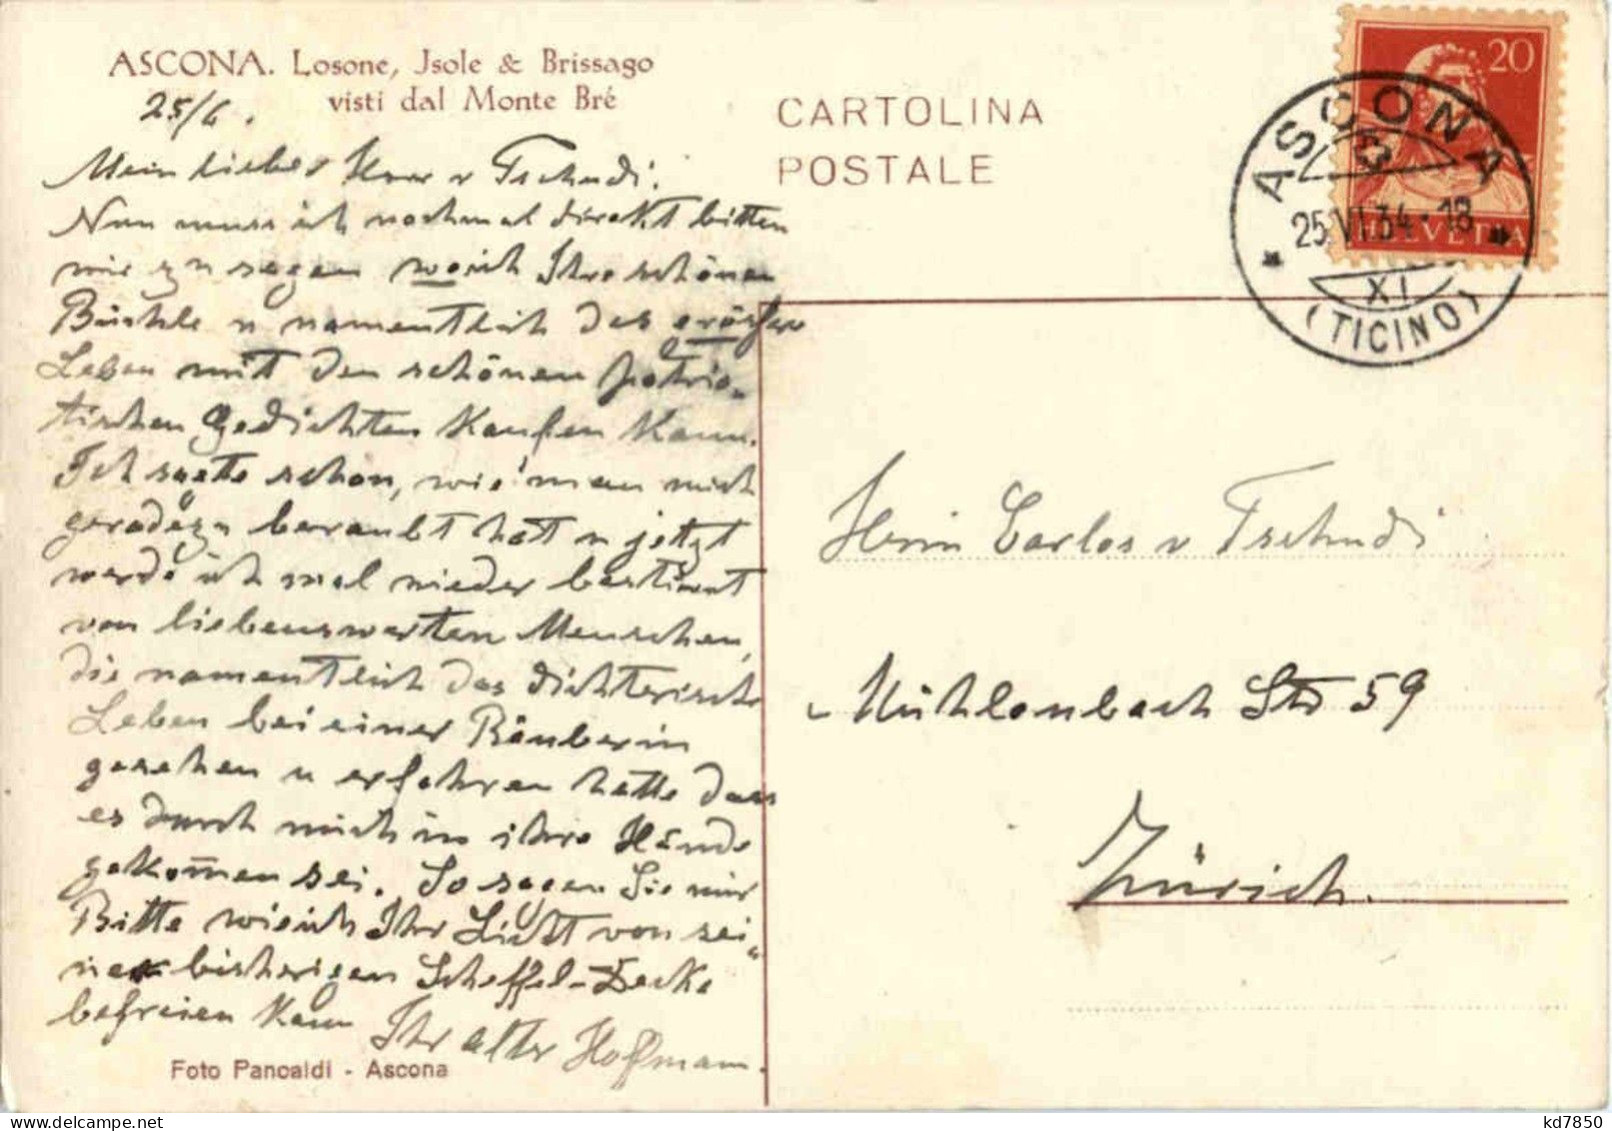 ASCONA. Losone, Jsole & Brissago
visti dal Monte Bré
25/6.
Mein lieber Herr v Tschudi.
Nun muss ich nochmal direkt bitten
mir zu sagen wo ich Ihre schönen
Büchle u namentlich das
Leben mit den schönen patrio-
tischen Gedichten kaufen kann.
Ich sagte schon, wie man mich
geradezu beraubt hatt u jetzt
werde ich mal wieder bestürmt
von liebenswerten Menschen,
die namentlich das dichterische
Leben bei einer Räuberin
gesehen u erfahren hatte dass
es durch mich in ihre Hände
gekom̅en sei. So sagen Sie mir
Bitte wie ich Ihr Licht von sei-
ner bisherigen Scheffel-Decke
befreien kann Ihr alter Hoffmann.
Foto Pancaldi - Ascona
CARTOLINA
POSTALE
20
HELVETIA
ASCONA
25.VI.34-18
XI
(TICINO)
Herrn Carlos v Tschudi
Mühlenbach Str 59
Zürich.
kd7850